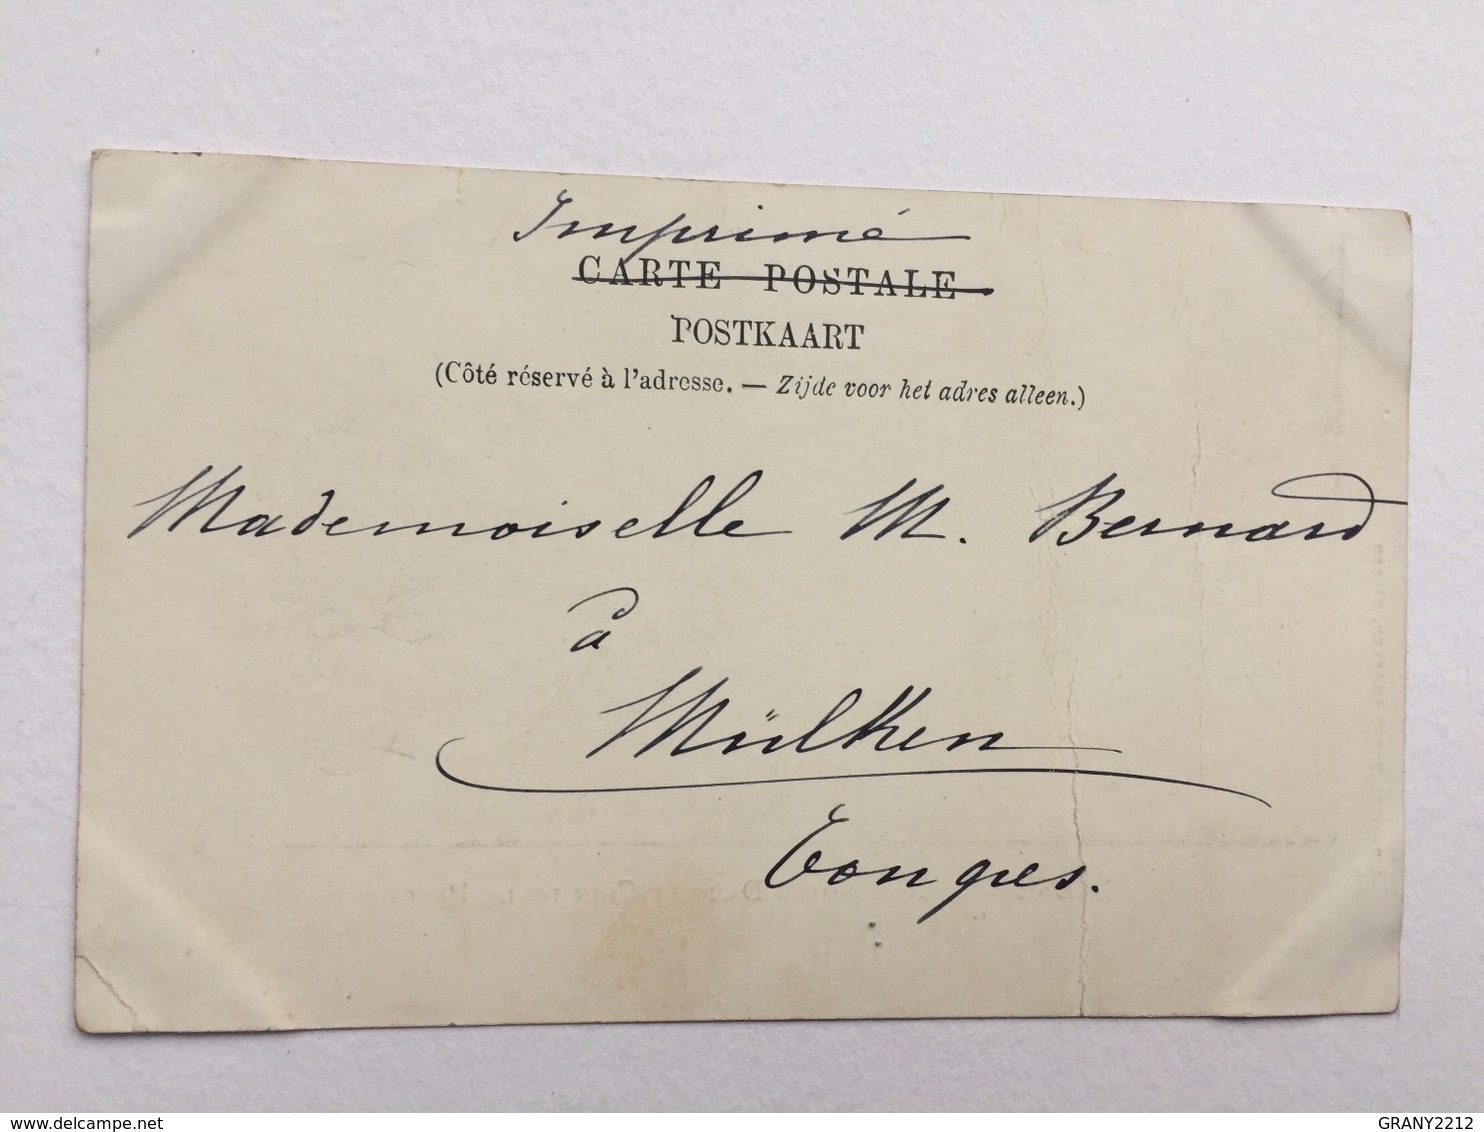 Imprimé
CARTE POSTALE
POSTKAART
(Côté réservé à l'adresse. — Zijde voor het adres alleen.)
Mademoiselle M. Bernard
à
Mülken
Tongres.
delcampe.net
GRANY2212